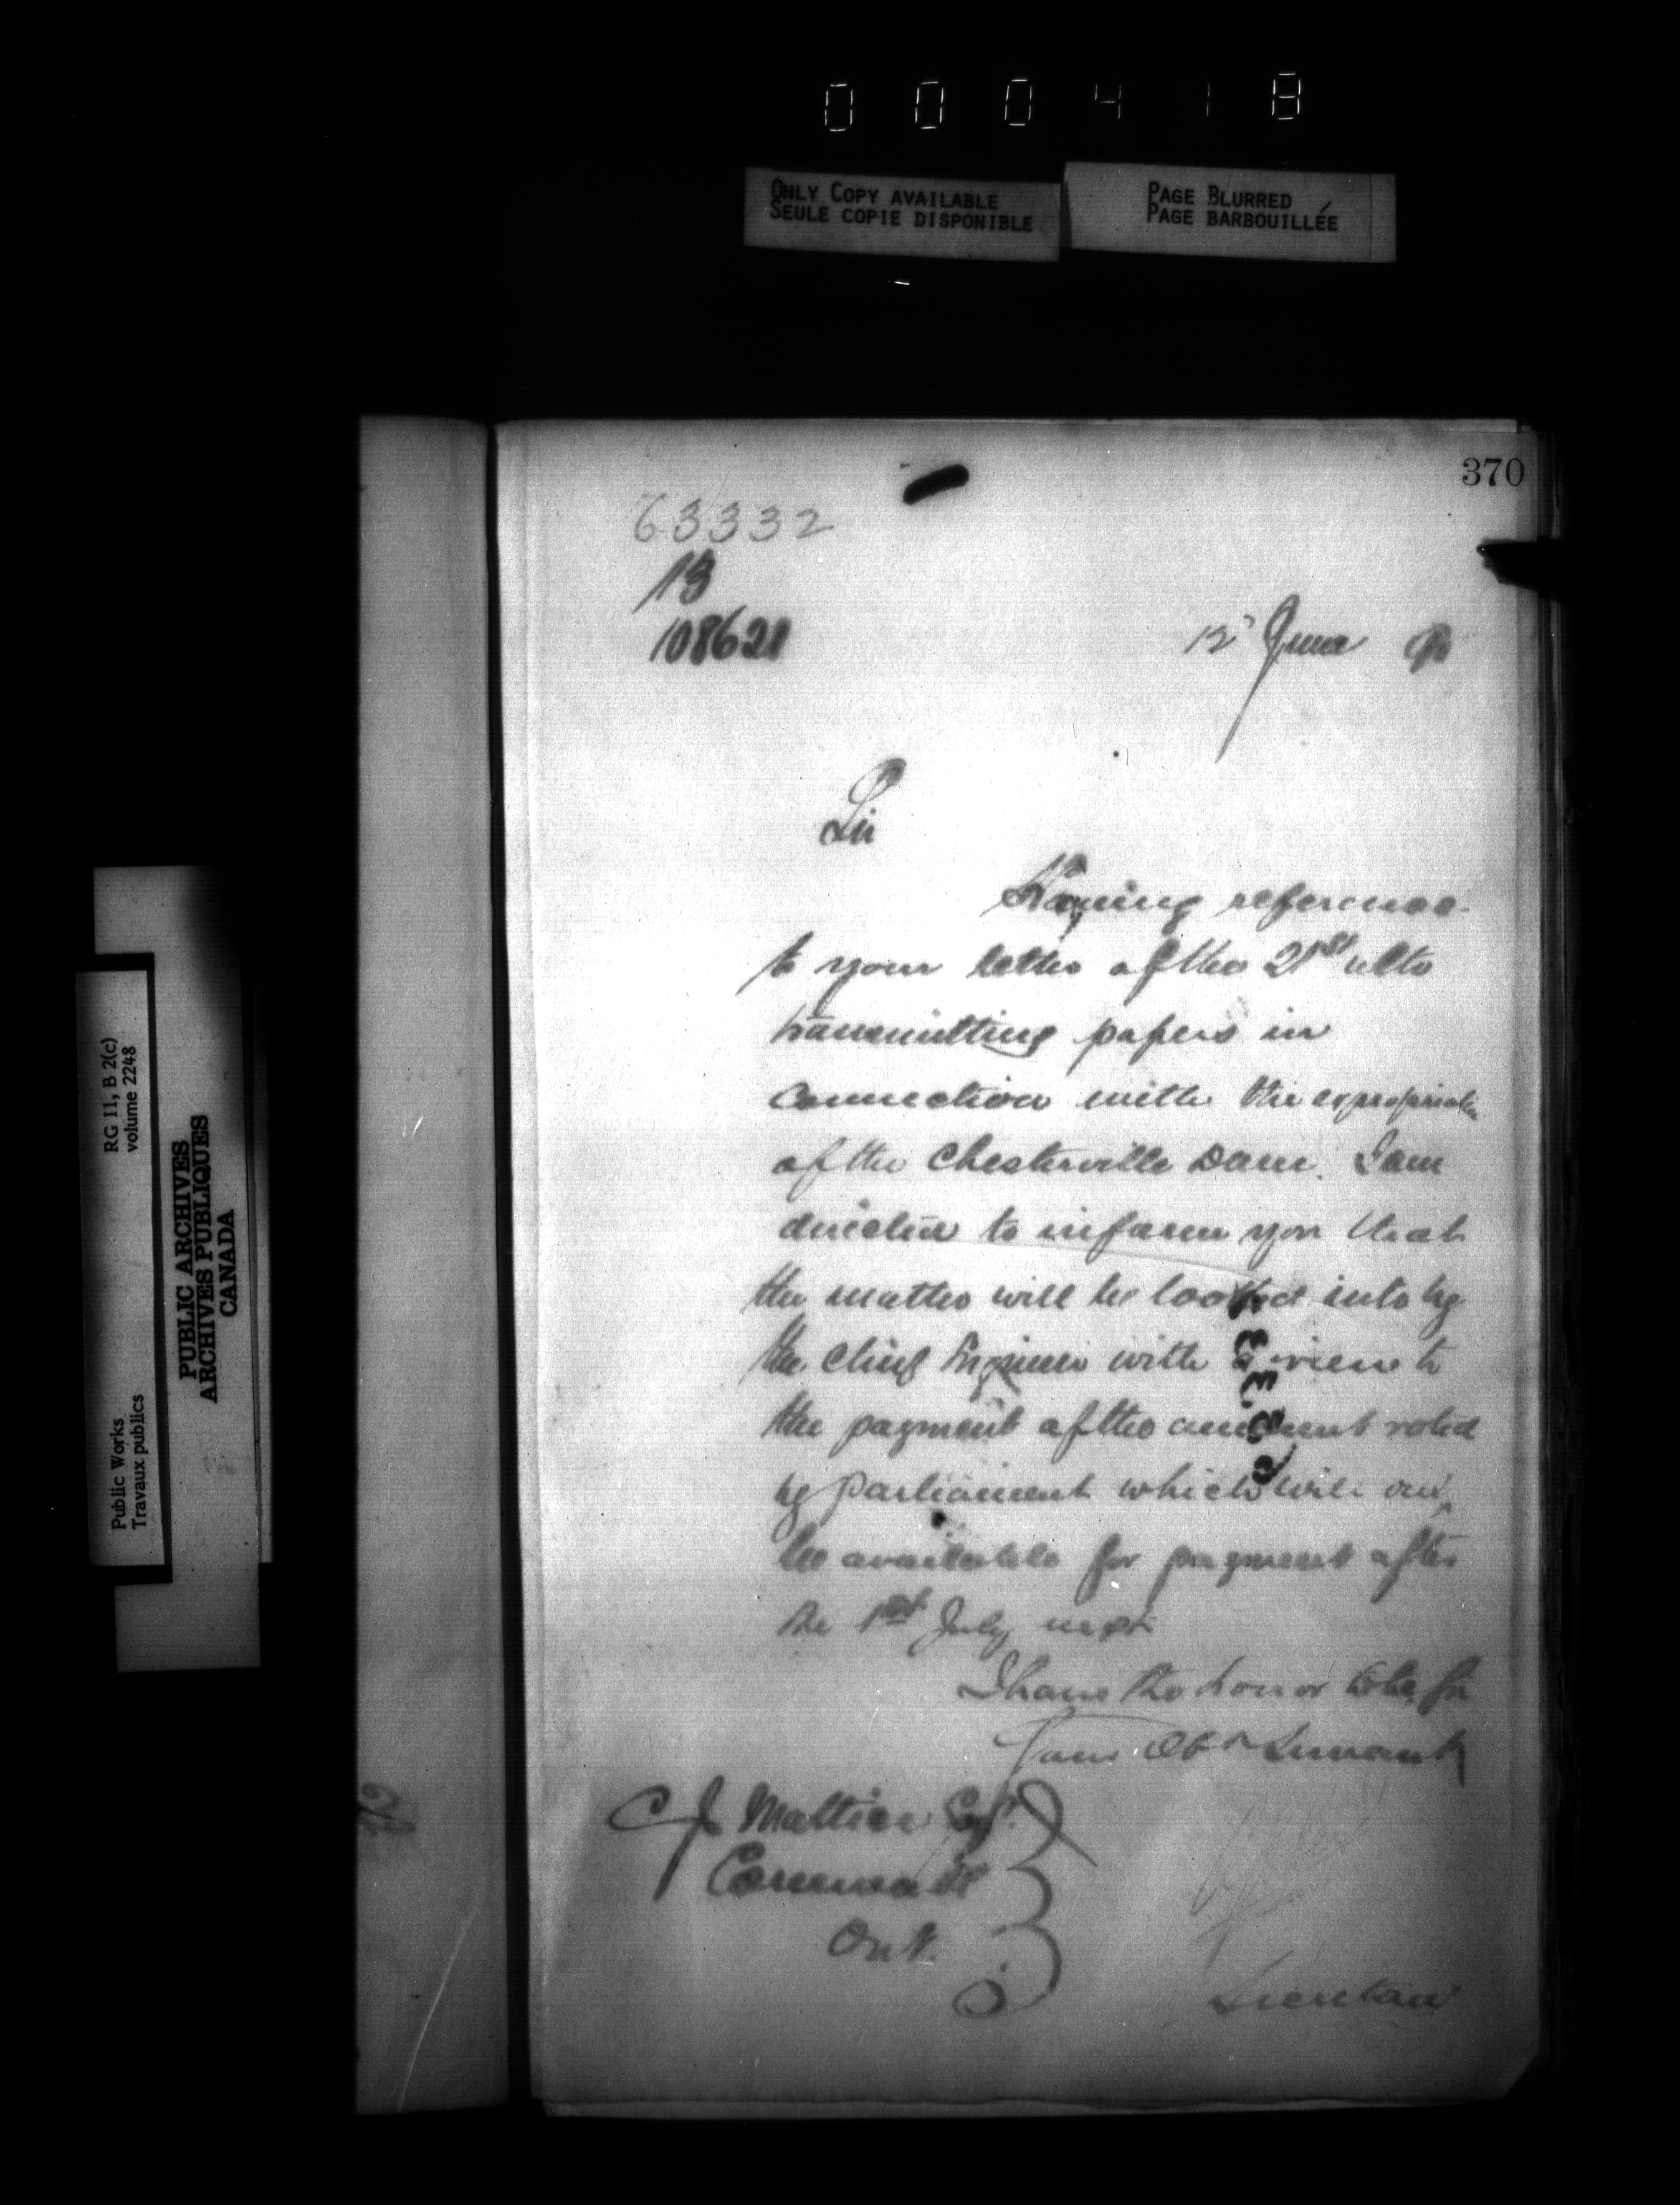 000418
ONLY COPY AVAILABLE
SEULE COPIE DISPONIBLE
PAGE BLURRED
PAGE BARBOUILLÉE
370
63332
13
108621
12 June 90
Sir
Having reference
to your letter of the 21st ulto
transmitting papers in
connection with the expropriation
of the Chesterville Dam. I am
directed to inform you that
the matter will be looked into by
the Chief Engineer with a view to
the payment of the amount voted
by Parliament which will only
be available for payment after
the 1st July next
I have the honor to be, Sir
Your Obt Servant
C J Mattice Esqr.
Cornwall
Ont.
Secretary
RG 11, B 2(c)
volume 2248
Public Works
Travaux publics
PUBLIC ARCHIVES
ARCHIVES PUBLIQUES
CANADA